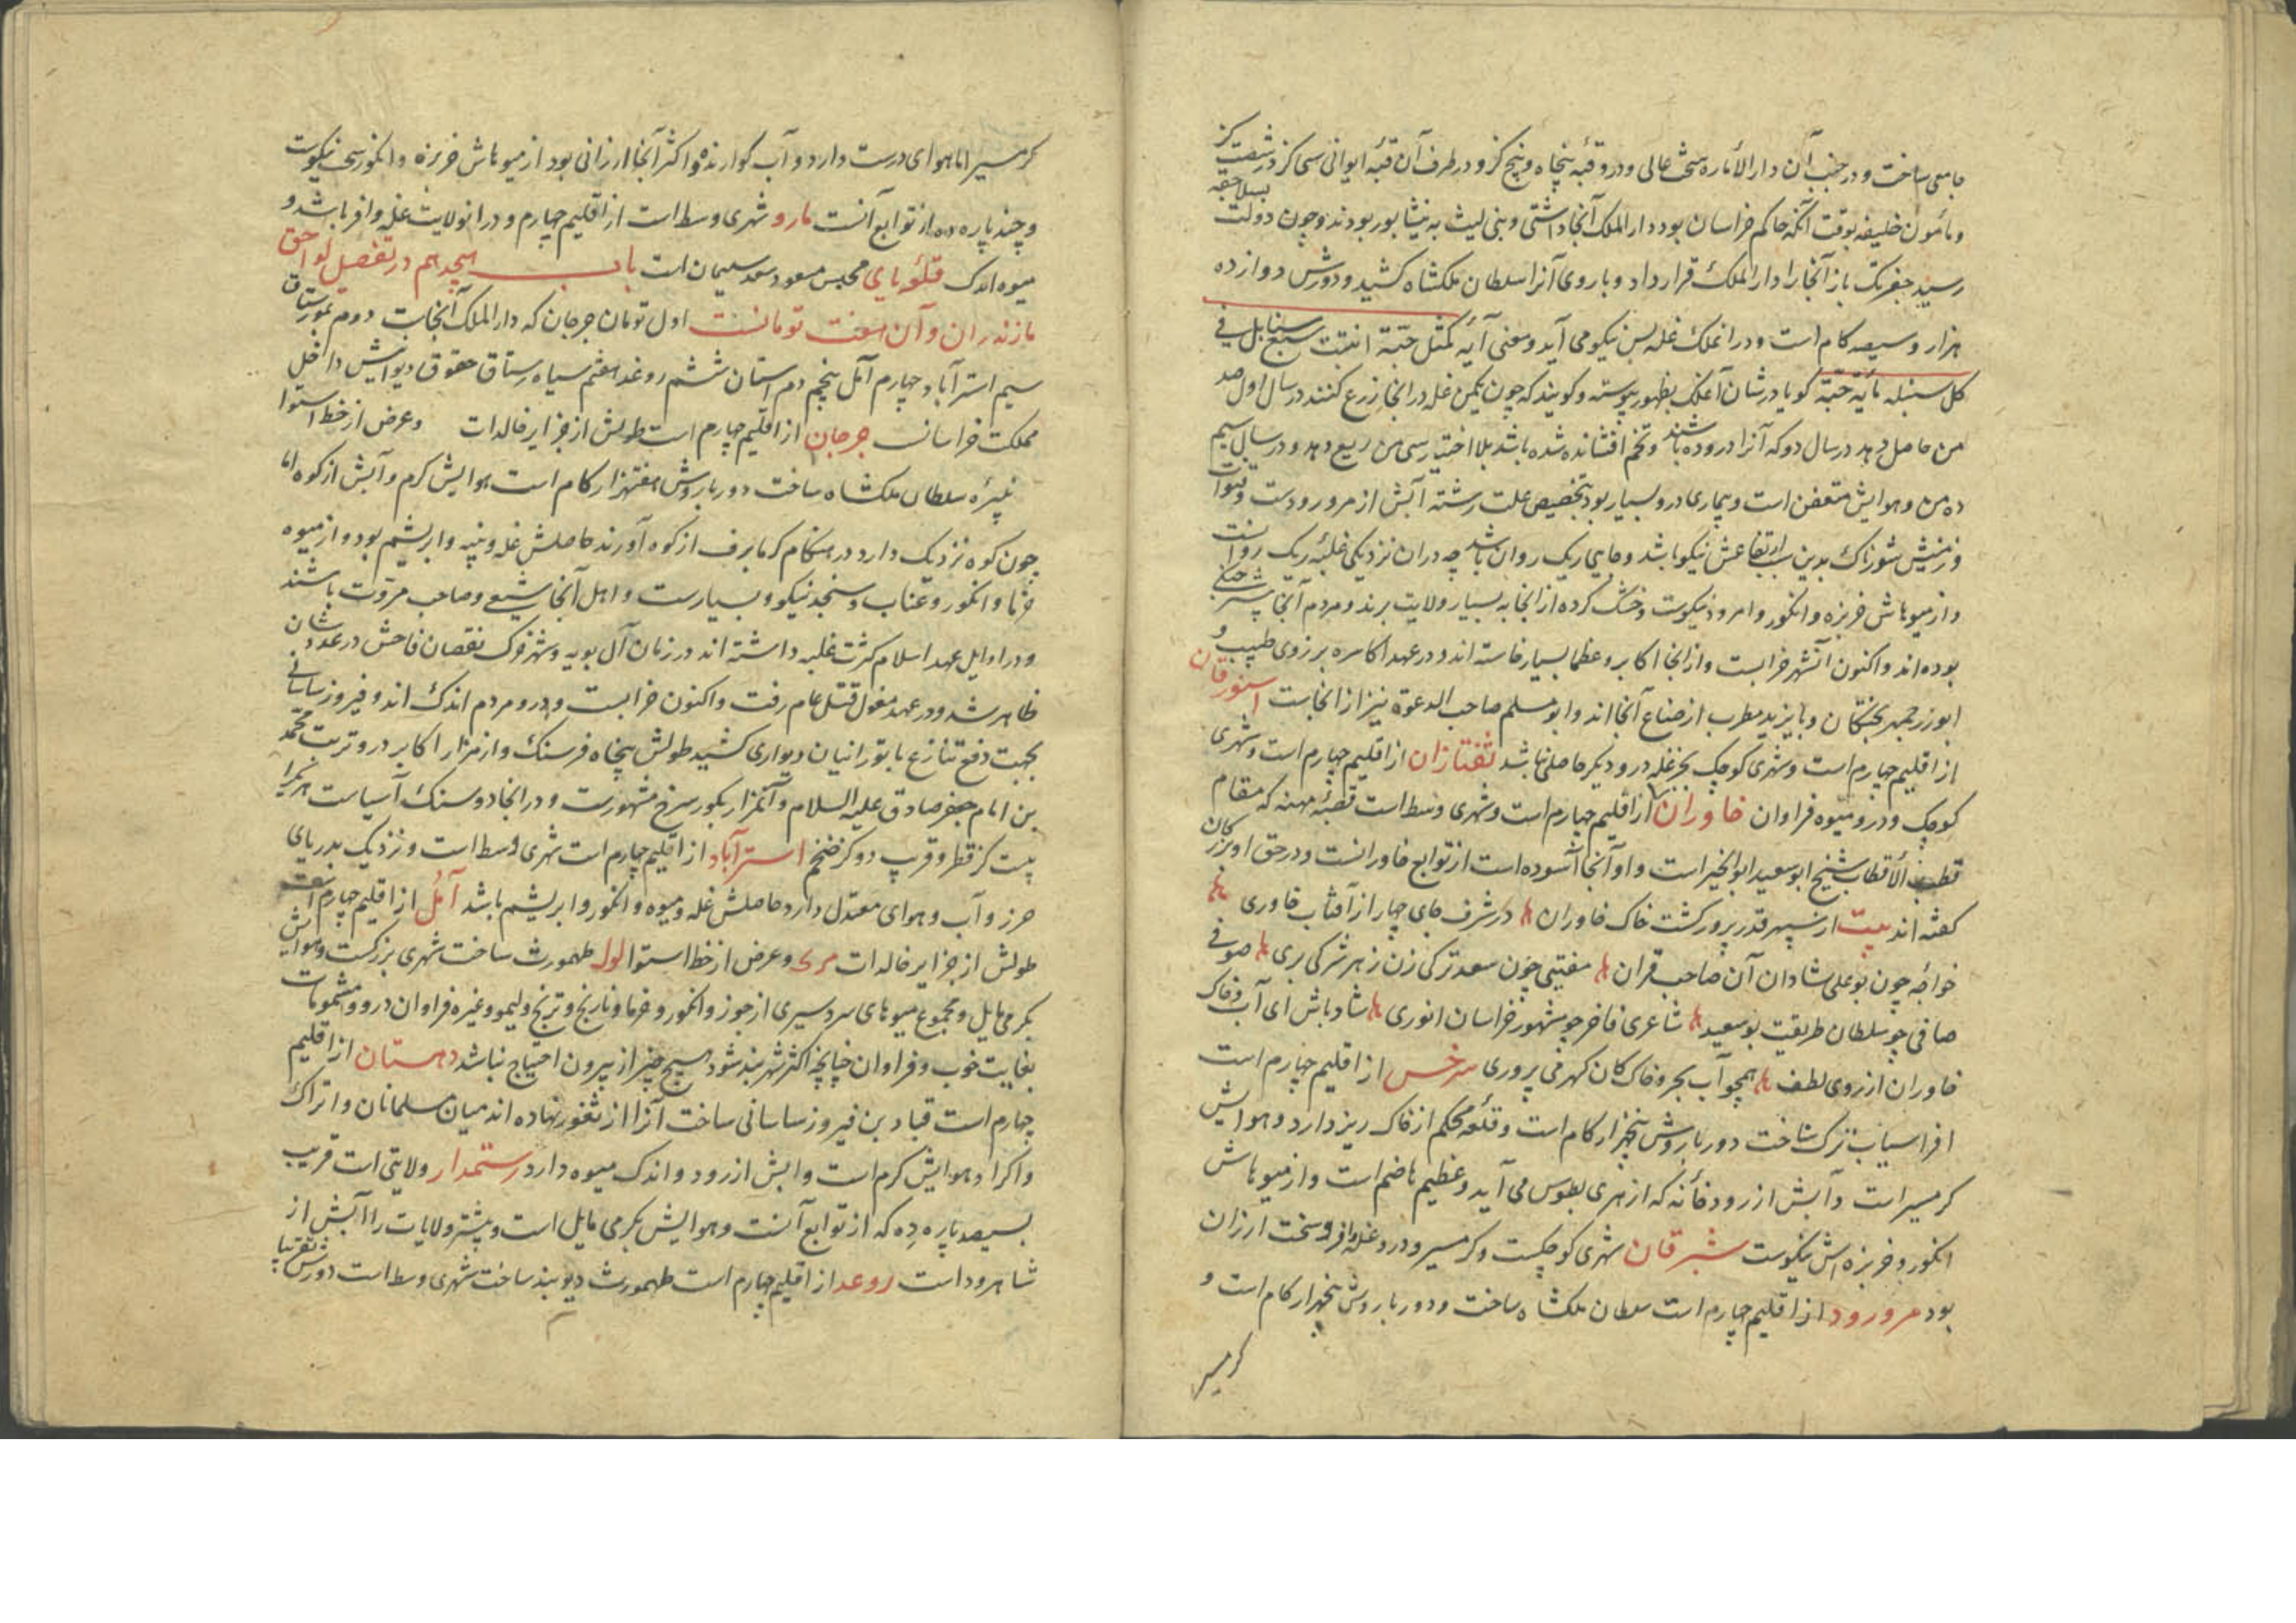 جامعی ساخت و در جنب آن دار الأماره سخت عالی و درو قبّه پنجاه و پنج گز و در طرف آن قبّه ایوانی سی گز در شصت گز
و مأمون خلیفه بوقت آنکه حاکم خراسان بود دار الملک آنجا داشتی و بنی لیث به نیشابور بودند و چون دولت بسلاجقه
رسید جغربک باز آنجا را دار الملک قرار داد و باروی آنرا سلطان ملکشاه کشید و دورش دوازده
هزار و سیصد کام است و در انملک غله بس نیکو می آید و معنی آیه کمثل حبّة انبتت سبع سنابل فی
کل سنبلة مائة حبّة گویا در شان آنملک بظهور پیوسته و گویند که چون یکمن غله در آنجا زرع کنند در سال اول صد
من حاصل دهد در سال دو که آنرا دروده باشند و تخم افشانده شده باشد بلا اختیار سی من ریع دهد و در سال سیم
ده من و هوایش متعفن است و بیماری درو بسیار بود بتخصیص علت رشته آبش از مرورودست و قنوات
و زمینش شورناک بدین سبب ارتفاعش نیکو باشد و جای ریک روان باشد چه دران نزدیکی غلبه ریک روانست
و از میوهاش خربزه و انکور و امرود نیکوست و خشک کرده از انجا به بسیار ولایت برند و مردم آنجا بیشتر جنکی
بوده اند و اکنون آنشهر خرابست و از انجا اکابر و عظما بسیار خاسته اند و در عهد اکاسره برزوی طبیب و
ابوزرجمهر بختگان و بایزید مطرب از صناع آنجا اند و ابو مسلم صاحب الدعوة نیز از انجاست اسنورقان
از اقلیم چهارم است و شهری کوچک بجز غله درو دیگر حاصلی نباشد تفتازان از اقلیم چهارم است و شهری
کوچک و درو میوه فراوان خاوران از اقلیم چهارم است و شهری وسط است قصبهٔ مهنه که مقام
قطب الأقطاب شیخ ابو سعید ابو الخیر است و او آنجا آسوده است از توابع خاورانست و در حق او بزرکان
کفته اند بیت از سپهر قدر پرور کشت خاک خاوران در شرف جای چهار از آفتاب خاوری
خواجهٔ چون بو علی شادان آن صاحب قران مفتیی چون سعد ترکی زن زهر شرکی بری صوفی
صافی چو سلطان طریقت بو سعید شاعری فاخر چو مشهور خراسان انوری شاد باش ای آب و خاک
خاوران از روی لطف همچو آب بحر و خاک کان کهر می پروری سرخس از اقلیم چهارم است
افراسیاب ترک ساخت دور باروش پنجهزار کام است و قلعهٔ محکم از خاک ریز دارد و هوایش
کرمسیر است و آبش از رودخانه که از هری بطوس می آید و عظیم هاضم است و از میوهاش
انکور و خربزه اش نیکوست شبرقان شهری کوچکست و کرمسیر و درو غله وافر و سخت ارزان
بود مرورود از اقلیم چهارم است سلطان ملکشاه ساخت و دور باروش پنجهزار کام است و
کرمسیر
کرمسیر اما هوای درست دارد و آب کوارنده و اکثر آنجا ارزانی بود از میوهاش خربزه و انکور سخت نیکوست
و چند پاره ده از توابع آنست مارو شهری وسط است از اقلیم چهارم و در انولایت غله وافر باشد و
میوه اندک قلعهٔ نای محبس مسعود سعد سلیمان است باب هجدهم در تفصیل لواحق
مازندران و آن هفت تومانست اول تومان جرجان که دار الملک آنجاست دوم مورستاق
سیم استرآباد چهارم آمل پنجم دهستان ششم روغد هفتم سیاه رستاق حقوق دیوانیش داخل
مملکت خراسان جرجان از اقلیم چهارم است طولش از جزایر خالدات و عرض از خط استوا
نبیرهٔ سلطان ملکشاه ساخت دور باروش هفتهزار کام است هوایش کرم و آبش از کوه اما
چون کوه نزدیک دارد در هنکام کرما برف از کوه آورند حاصلش غله و پنبه و ابریشم بود و از میوه
خرما و انکور و عناب و سنجد نیکو و بسیارست و اهل آنجا شیعی و صاحب مروّت باشند
و در اوایل عهد اسلام کثرت غلبه داشته اند در زمان آل بویه وشمزوک نقصان فاحش در عددشان
ظاهر شد و در عهد مغول قتل عام رفت و اکنون خرابست و درو مردم اندک اند و فیروز ساسانی
بجهت دفع تنازع با تورانیان دیواری کشید طولش پنجاه فرسنک و از مزار اکابر درو تربت محمّد
بن امام جعفر صادق علیه السلام و آنمزار بکور سرخ مشهورست و در انجا دو سنک آسیاست هریکرا
بیست کز قطر و قریب دو کز ضخم استرآباد از اقلیم چهارم است شهری وسط است و نزدیک بدریای
خزر و آب و هوای معتدل دارد حاصلش غله و میوه و انکور و ابریشم باشد آمل از اقلیم چهارم است
طولش از جزایر خالدات و عرض از خط استوا طهمورث ساخت شهری بزرکست و هوایش
بکرمی مایل و مجموع میوهای سردسیری از جوز و انکور و خرما و نارنج و ترنج و لیمو و غیره فراوان درو و مشمومات
بغایت خوب و فراوان چنانچه اکثر شهر بند شود هیچ چیز از بیرون احتیاج نباشد دهستان از اقلیم
چهارم است قباد بن فیروز ساسانی ساخت آنرا از ثغور نهاده اند میان مسلمانان و اتراک
و اکراد و هوایش کرم است و ابش از رود و اندک میوه دارد رستمدار ولایتی است قریب
بسیصد پاره ده که از توابع آنست و هوایش بکرمی مایل است و بیشتر ولایات را آبش از
شاهرود است روعد از اقلیم چهارم است طهمورث دیوبند ساخت شهری وسط است دورش تقریبا